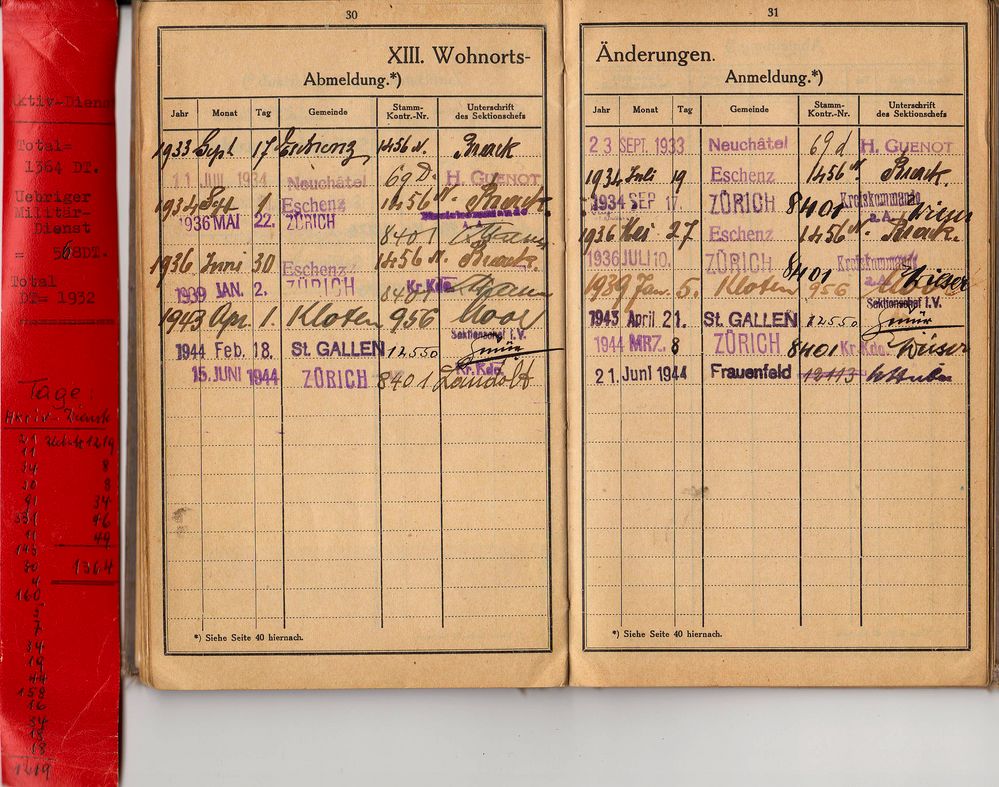 Aktiv-Dienst
Total=
1364 DT.
Uebriger
Militär-
Dienst
= 568DT.
Total
DT= 1932
Tage:
Aktiv-Dienst
21 1219
11 8
34 8
20 34
91 46
331 49
11
145 1364
80
4
160
5
7
34
19
44
158
16
34
18
18
1219
30
XIII. Wohnorts-
Abmeldung.*)
Jahr Monat Tag Gemeinde Stamm-Kontr.-Nr. Unterschrift des Sektionschefs
1933 Sept 17 Eschenz 1456 N. Brack
11 JUIL 1934 Neuchâtel 69 d. H. GUENOT
1934 Sept 1 Eschenz 1456 N. Brack.
1936 MAI 22. ZÜRICH 8401
1936 Juni 30 Eschenz 1456 N. Brack.
1939 JAN. 2. ZÜRICH 8401 Kr. Kdo.
1943 Apr. 1. Kloten 956 Moor
1944 Feb. 18. St. GALLEN 12550 Sektionschef i.V. Gmür
15. JUNI 1944 ZÜRICH 8401 Kr. Kdo. Landolt
*) Siehe Seite 40 hiernach.
31
Änderungen.
Anmeldung.*)
Jahr Monat Tag Gemeinde Stamm-Kontr.-Nr. Unterschrift des Sektionschefs
23 SEPT. 1933 Neuchâtel 69 d H. GUENOT
1934 Juli 19 Eschenz 1456 N. Brack.
1934 SEP 17. ZÜRICH 8401 Kreiskommando a.A.
1936 Mai 27 Eschenz 1456 N. Brack.
1936 JULI 10. ZÜRICH 8401 Kreiskommando
1939 Jan. 5. Kloten 956
1943 April 21. St. GALLEN 12550 Sektionschef i.V. Gmür
1944 MRZ. 8 ZÜRICH 8401 Kr. Kdo.
21. Juni 1944 Frauenfeld 12113
*) Siehe Seite 40 hiernach.